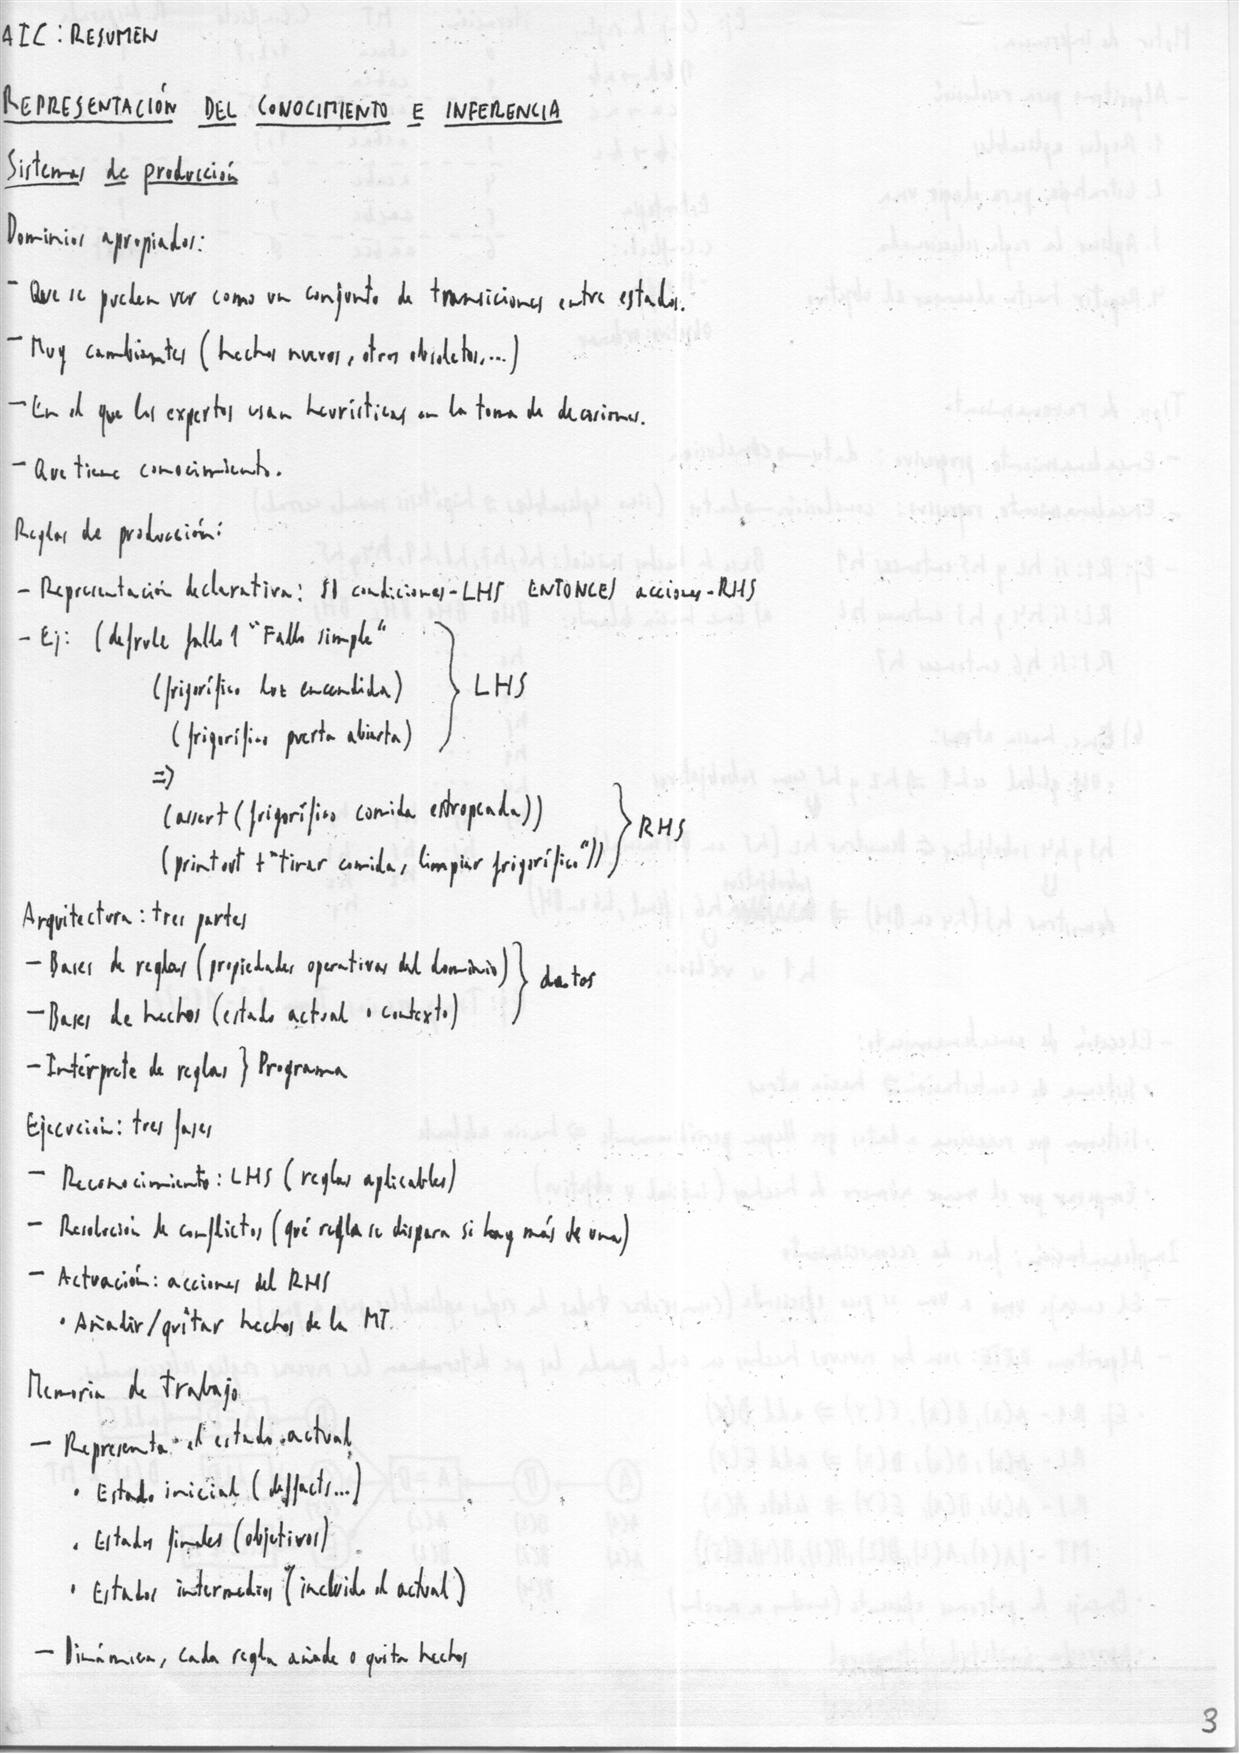 AIC: RESUMEN
REPRESENTACIÓN DEL CONOCIMIENTO E INFERENCIA
Sistemas de producción
Dominios apropiados:
- Que se pueden ver como un conjunto de transiciones entre estados.
- Muy cambiantes (hechos nuevos, otros obsoletos,...)
- En el que los expertos usan heurísticas en la toma de decisiones.
- Que tiene conocimiento.
Reglas de producción:
- Representación declarativa: SI condiciones-LHS ENTONCES acciones-RHS
- Ej: (defrule fallo1 "Fallo simple"
(frigorífico luz encendida)
(frigorífico puerta abierta)
LHS
=>
(assert (frigorífico comida estropeada))
(printout t "tirar comida, limpiar frigorífico"))
RHS
Arquitectura: tres partes
- Bases de reglas (propiedades operativas del dominio)
- Bases de hechos (estado actual o contexto)
datos
- Intérprete de reglas } Programa
Ejecución: tres fases
- Reconocimiento: LHS (reglas aplicables)
- Resolución de conflictos (qué regla se dispara si hay más de una)
- Actuación: acciones del RHS
· Añadir/quitar hechos de la MT
Memoria de trabajo
- Representa el estado actual
· Estado inicial (deffacts...)
· Estados finales (objetivos)
· Estados intermedios (incluido el actual)
- Dinámica, cada regla añade o quita hechos
3